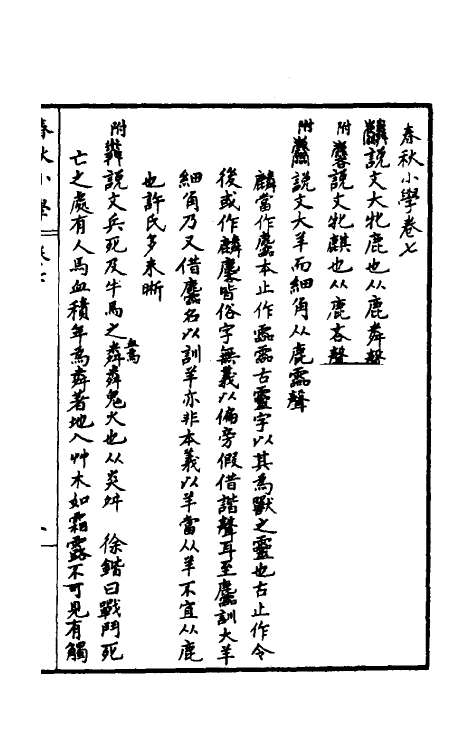 春秋小學卷七
麟說文大牝鹿也从鹿粦聲
附麐說文牝麒也从鹿吝聲
附麢說文大羊而細角从鹿霝聲
麟當作麢本止作霝霝古靈字以其為獸之靈也古止作令
後或作麟麐皆俗字無義以偏旁假借諧聲耳至麢訓大羊
細角乃又借麢名以訓羊亦非本義以羊當从羊不宜从鹿
也許氏多未晰
附粦說文兵死及牛馬之血為粦粦鬼火也从炎舛 徐鍇曰戰鬥死
亡之處有人馬血積年為粦著地入艸木如霜露不可見有觸
春秋小學 卷七
一